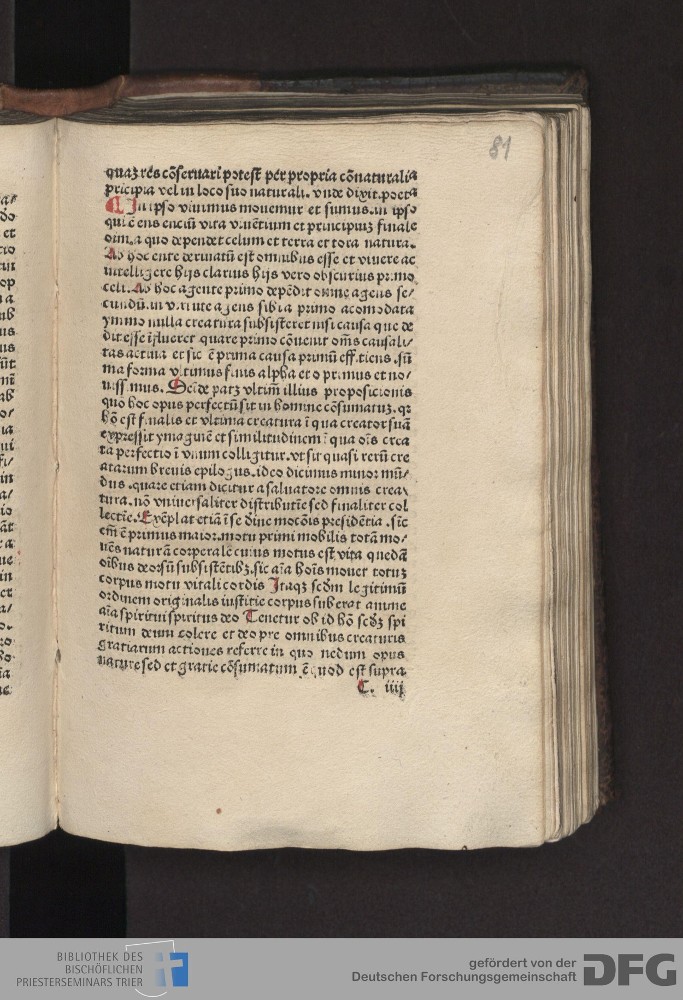 81
quaʒ res cōseruari potest per propria cōnaturalia
pricipia vel in loco suo naturali. vnde dixit poeta
¶ In ipso viuimus mouemur et sumus. in ipso
qui ē ens enciū vita viuētium et principiuʒ finale
oīm. a quo dependet celum et terra et tota natura.
Ab hoc ente deriuatū est omnibus esse et viuere ac
intelligere hijs clarius hijs vero obscurius primo
celi. Ab hoc agente primo depēdit omne agens se⸗
cundū. in virtute agens sibi a primo acomodata
ymmo nulla creatura subsisteret nisi causa que de
dit esse īflueret quare primo cōuenit om̄s causali⸗
tas actiua et sic ē prima causa primū efficiens. sū
ma forma vltimus finis alpha et o primus et no⸗
uissimus. Scīde patʒ vltim̄ illius proposicionis
quo hoc opus perfectū sit in homine cōsumatuʒ. qꝛ
hō est finalis et vltima creatura ī qua creator suā
expressit ymaginē et similitudinem ī qua oīs crea
ta perfectio ī vnum colligitur. vt sit quasi rerū cre
atarum breuis epilogus. ideo dicimus minor mū⸗
dus. quare etiam dicitur a saluatore omnis crea⸗
tura. nō vniuersaliter distributiē sed finaliter col
lectiē. Exēplat etiā ī se diuīe mocōis presidētia. sīc
em̄ ē primus maior. motu primi mobilis totā mo⸗
uēs naturā corporalē cuius motus est vita quedā
oībus deorsū subsistētibʒ. sic aīa hoīs mouet totuʒ
corpus motu vitali cordis Itaqʒ scdm legitimū
ordinem originalis iustitie corpus suberat anime
aīa spiritui spiritus deo Tenetur ob id hō scdʒ spi
ritum deum colere et deo pre omnibus creaturis
gratiarum actiones referre in quo nedum opus
nature sed et gratie cōsumatum ē quod est supra
C. iiij
BIBLIOTHEK DES
BISCHÖFLICHEN
PRIESTERSEMINARS TRIER
gefördert von der
Deutschen Forschungsgemeinschaft
DFG